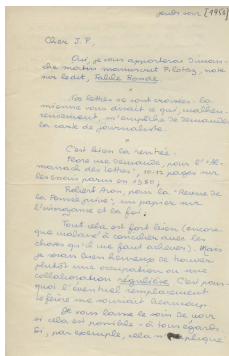 jeudi soir [1950]
Cher J. P.,
Oui, je vous apporterai diman-
che matin manuscrit Pilotaz, note
sur ledit, Table Ronde.
*
Nos lettres se sont croisées. La
mienne vous disait ce qui, malheu-
reusement, m'empêche de demander
la carte de journaliste.
*
C'est bien la rentrée.
Flore me demande, pour l'"Al-
manach des lettres", 10-12 pages sur
les romans parus en 1950;
Robert Aron, pour la "Revue de
la Pensée juive", un papier sur
et la foi.
Tout cela est fort bien (encore
que malaisé à concilier avec les
choses qu'il me faut achever). Mais
je serais bien heureux de trouver
plutôt une occupation ou une
collaboration régulière. C'est pour-
quoi l'éventuel remplacement
me souriait beaucoup.
Je vous laisse le soin de voir
si cela est possible - à tous égards.
Si, par exemple, cela